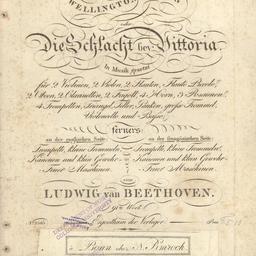 WELLINGTONS
oder
Die Schlacht bey Vittoria
In Musik gesetzt
für 2 Violinen, 2 Violen, 2 Flauten, Flauto Piccolo,
2 Oboen, 2 Clarinetten, 2 Fagott, 4 Horn, 3 Posaunen,
4 Trompetten, Triangel, Teller, Pauken, grosse Trommel,
Violoncelle und Bässe,
ferners
an der englischen Seite an der französischen Seite
Trompette, kleine Trommeln, Trompette, kleine Trommeln,
Kanonen und klein Gewehr Kanonen und klein Gewehr
Feuer Maschinen. Feuer Maschinen.
von
LUDWIG van BEETHOVEN.
91tes Werk
Eigenthum der Verleger
Bonn N. Simrock